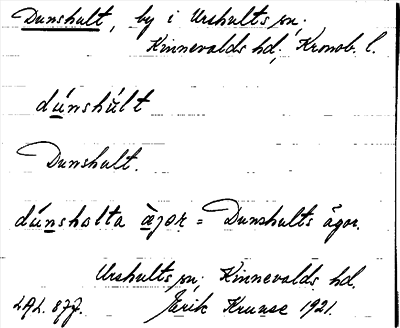 Dunshult, by i Urshults sn;
Kinnevalds hd; Kronob. l.
dúnshùlt
Dunshult.
dúnsholta àjor = Dunshults ägor.
Urshults sn; Kinnevalds hd.
LAL. 877. Erik Kruuse 1921.